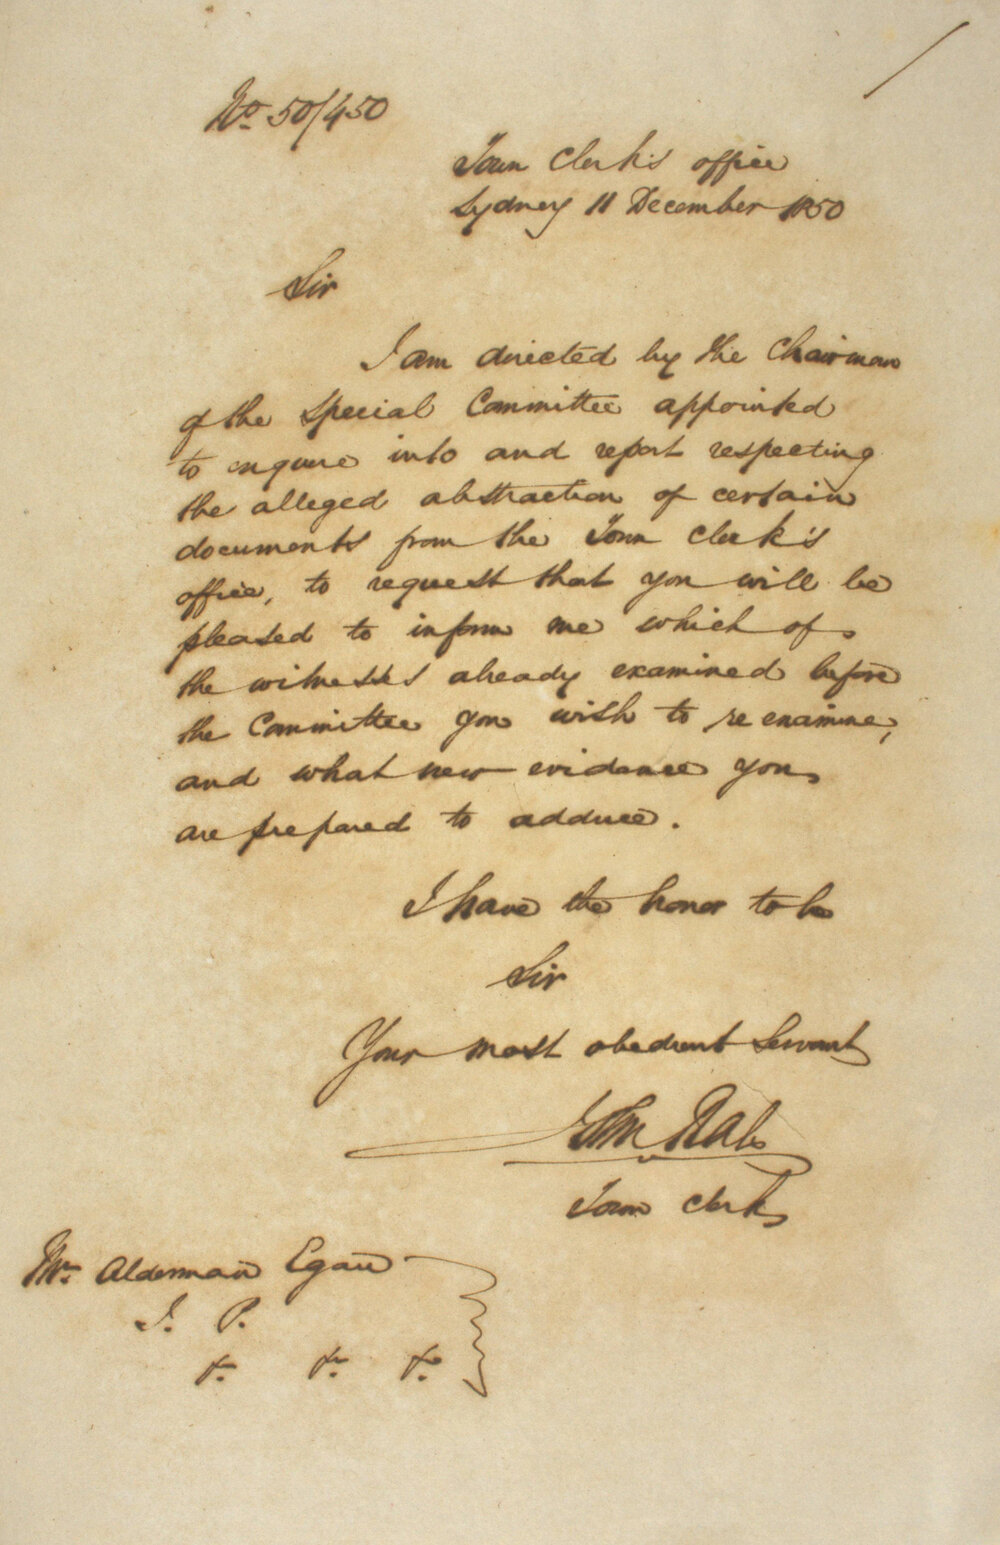 No. 50/450
Town Clerk's office
Sydney 11 December 1850
Sir
I am directed by the Chairman
of the Special Committee appointed
to enquire into and report respecting
the alleged abstraction of certain
documents from the Town Clerk's
office, to request that you will be
pleased to inform me which of
the witnesses already examined before
the Committee you wish to re examine,
and what new evidence you
are prepared to adduce.
I have the honor to be
Sir
Your most obedient Servant
John Rae
Town Clerk
Mr. Alderman Egan
J. P.
&c. &c. &c.